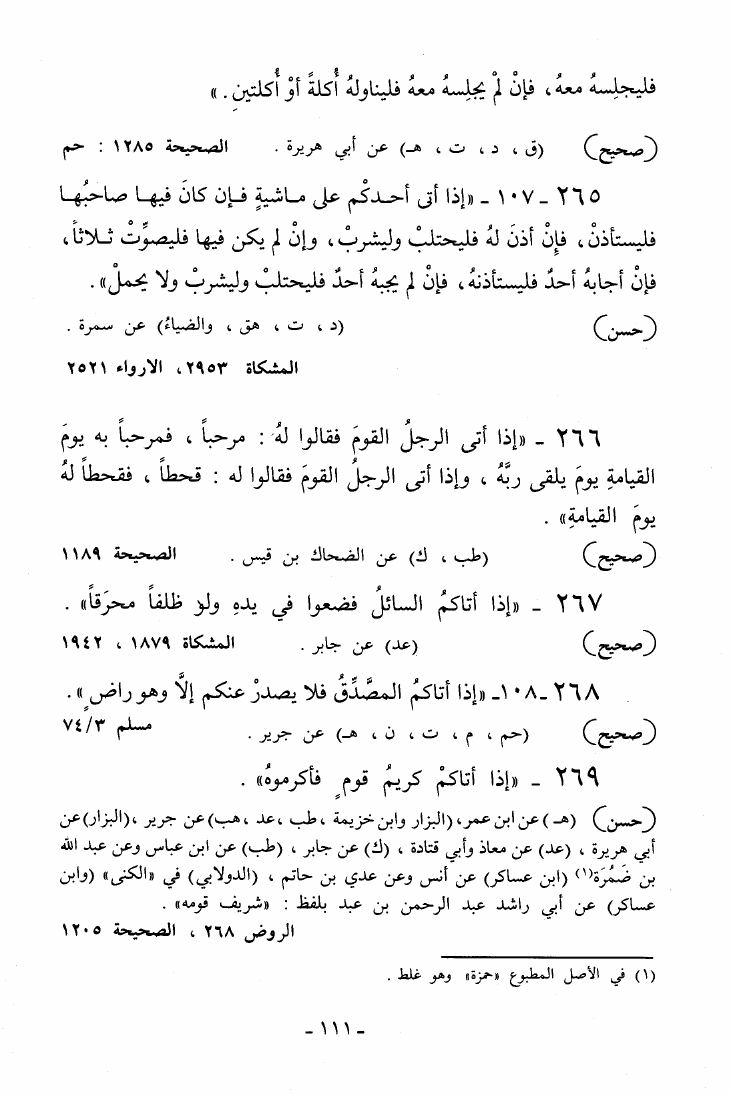 فليجلِسهُ معهُ، فإنْ لمْ يجلِسهُ معهُ فليناولهُ أُكلةً أوْ أُكلتينِ. »
(صحيح) (ق، د، ت، هـ) عن أبي هريرة . الصحيحة ١٢٨٥ : حم
٢٦٥ ـ ١٠٧ ـ «إذا أتى أحدكُم على ماشيةٍ فإن كانَ فيها صاحبُها
فليستأذنْ، فإِنْ أذنَ لهُ فليحتلبْ وليشربْ، وإنْ لم يكن فيها فليصوِّتْ ثلاثاً،
فإنْ أجابهُ أحدٌ فليستأذنهُ، فإنْ لم يجبهُ أحدٌ فليحتلبْ وليشربْ ولا يحملْ» .
(حسن) (د، ت، هق، والضياءُ) عن سمرة .
المشكاة ٢٩٥٣، الارواء ٢٥٢١
٢٦٦ ـ «إذا أتى الرجلُ القومَ فقالوا لهُ : مرحباً ، فمرحباً به يومَ
القيامةِ يومَ يلقى ربَّهُ ، وإذا أتى الرجلُ القومَ فقالوا له : قحطاً ، فقحطاً لهُ
يومَ القيامةِ» .
(صحيح) (طب، ك) عن الضحاك بن قيس . الصحيحة ١١٨٩
٢٦٧ ـ «إذا أتاكمُ السائلُ فضعوا في يدهِ ولو ظلفاً محرَقاً» .
(صحيح) (عد) عن جابر . المشكاة ١٨٧٩ ، ١٩٤٢
٢٦٨ ـ ١٠٨ ـ «إذا أتاكمُ المصَّدِّقُ فلا يصدرْ عنكم إلَّا وهو راضٍ» .
(صحيح) (حم، م، ت، ن، هـ) عن جرير . مسلم ٧٤/٣
٢٦٩ ـ «إذا أتاكمْ كريمُ قومٍ فأكرموهُ» .
(حسن) (هـ) عن ابن عمر، (البزار وابن خزيمة ،طب ،عد ،هب) عن جرير ،(البزار) عن
أبي هريرة ، (عد) عن معاذ وأبي قتادة ، (ك) عن جابر ، (طب) عن ابن عباس وعن عبد الله
بن ضَمُرَة(١) (ابن عساكر) عن أنس وعن عدي بن حاتم ، (الدولابي) في «الكنى» (وابن
عساكر) عن أبي راشد عبد الرحمن بن عبد بلفظ : «شريف قومه» .
الروض ٢٦٨ ، الصحيحة ١٢٠٥
(١) في الأصل المطبوع «حمزة» وهو غلط .
ـ ١١١ ـ